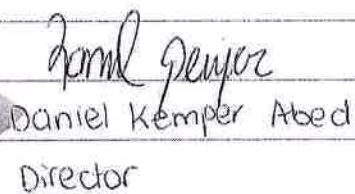 Daniel Kemper Abed
Director